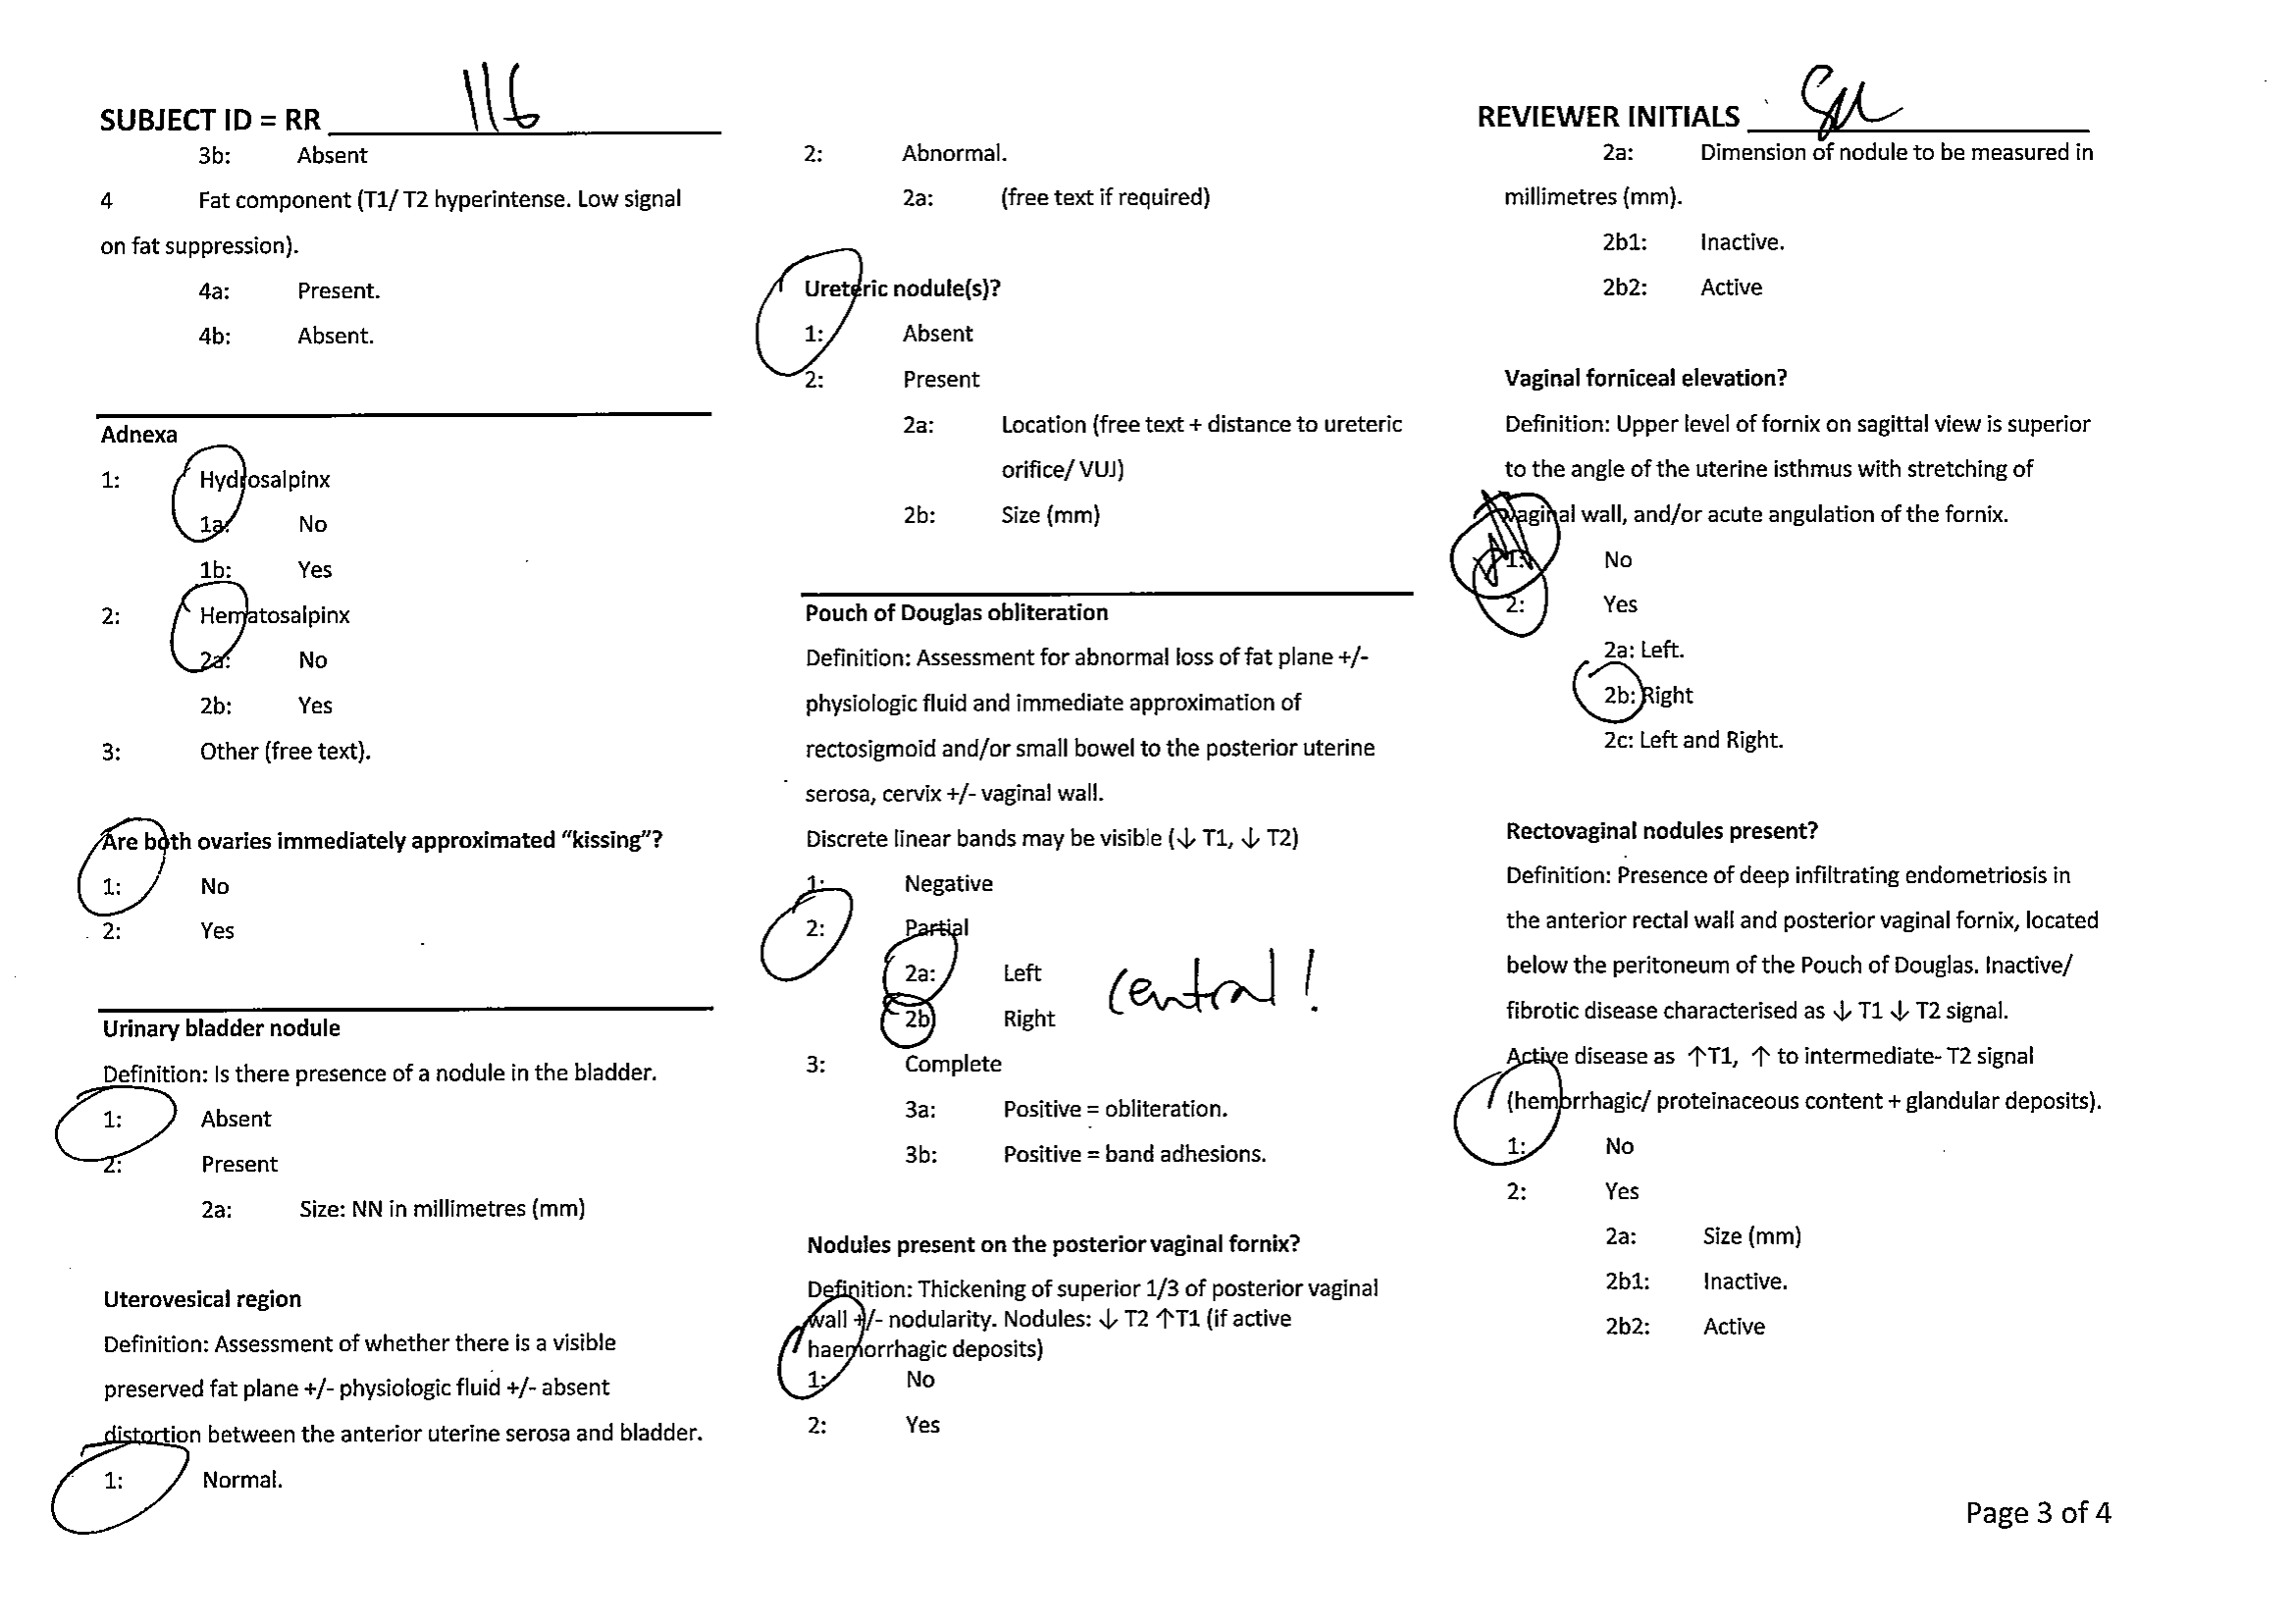 SUBJECT ID = RR 116
3b: Absent
4 Fat component (T1/ T2 hyperintense. Low signal
on fat suppression).
4a: Present.
4b: Absent.
Adnexa
1: Hydrosalpinx
1a: No
1b: Yes
2: Hematosalpinx
2a: No
2b: Yes
3: Other (free text).
Are both ovaries immediately approximated “kissing”?
1: No
2: Yes
Urinary bladder nodule
Definition: Is there presence of a nodule in the bladder.
1: Absent
2: Present
2a: Size: NN in millimetres (mm)
Uterovesical region
Definition: Assessment of whether there is a visible
preserved fat plane +/- physiologic fluid +/- absent
distortion between the anterior uterine serosa and bladder.
1: Normal.
2: Abnormal.
2a: (free text if required)
Ureteric nodule(s)?
1: Absent
2: Present
2a: Location (free text + distance to ureteric
orifice/ VUJ)
2b: Size (mm)
Pouch of Douglas obliteration
Definition: Assessment for abnormal loss of fat plane +/-
physiologic fluid and immediate approximation of
rectosigmoid and/or small bowel to the posterior uterine
serosa, cervix +/- vaginal wall.
Discrete linear bands may be visible (↓ T1, ↓ T2)
1: Negative
2: Partial
2a: Left
central !
2b: Right
3: Complete
3a: Positive = obliteration.
3b: Positive = band adhesions.
Nodules present on the posterior vaginal fornix?
Definition: Thickening of superior 1/3 of posterior vaginal
wall +/- nodularity. Nodules: ↓ T2 ↑T1 (if active
haemorrhagic deposits)
1: No
2: Yes
REVIEWER INITIALS
2a: Dimension of nodule to be measured in
millimetres (mm).
2b1: Inactive.
2b2: Active
Vaginal forniceal elevation?
Definition: Upper level of fornix on sagittal view is superior
to the angle of the uterine isthmus with stretching of
vaginal wall, and/or acute angulation of the fornix.
1: No
2: Yes
2a: Left.
2b: Right
2c: Left and Right.
Rectovaginal nodules present?
Definition: Presence of deep infiltrating endometriosis in
the anterior rectal wall and posterior vaginal fornix, located
below the peritoneum of the Pouch of Douglas. Inactive/
fibrotic disease characterised as ↓ T1 ↓ T2 signal.
Active disease as ↑T1, ↑ to intermediate- T2 signal
(hemorrhagic/ proteinaceous content + glandular deposits).
1: No
2: Yes
2a: Size (mm)
2b1: Inactive.
2b2: Active
Page 3 of 4